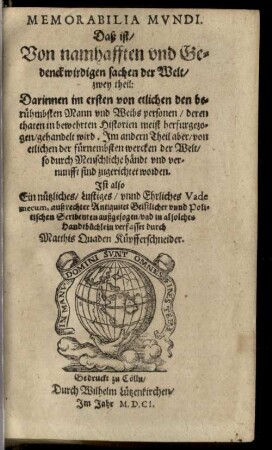 MEMORABILIA MVNDI.
Daß ist/
Von namhafften vnd Ge-
denckwirdigen sachen der Welt/
zwey theil:
Darinnen im ersten von etlichen den be-
rühmbsten Mann vnd Weibs personen / deren
thaten in bewehrten Historien meist herfurgezo-
gen/gehandelt wird. Im andern Theil aber/von
etlichen der fürnembsten wercken der Welt/
so durch Menschliche händt vnd ver-
nunfft sind zugerichtet worden.
Ist also
Ein nützliches/ Lustiges / vnnd Ehrliches Vade
mecum, auß rechter Antiquitet Geistlicher vnnd Poli-
tischen Scribenten außgezogen/vnd in al solches
Handtbüchlein verfasset durch
Matthis Quaden Küpfferschneider.
IN MANV DOMINI SVNT OMNES FINES TERRÆ
Gedruckt zu Cölln/
Durch Wilhelm Lützenkirchen/
Im Jahr M.DC.I.